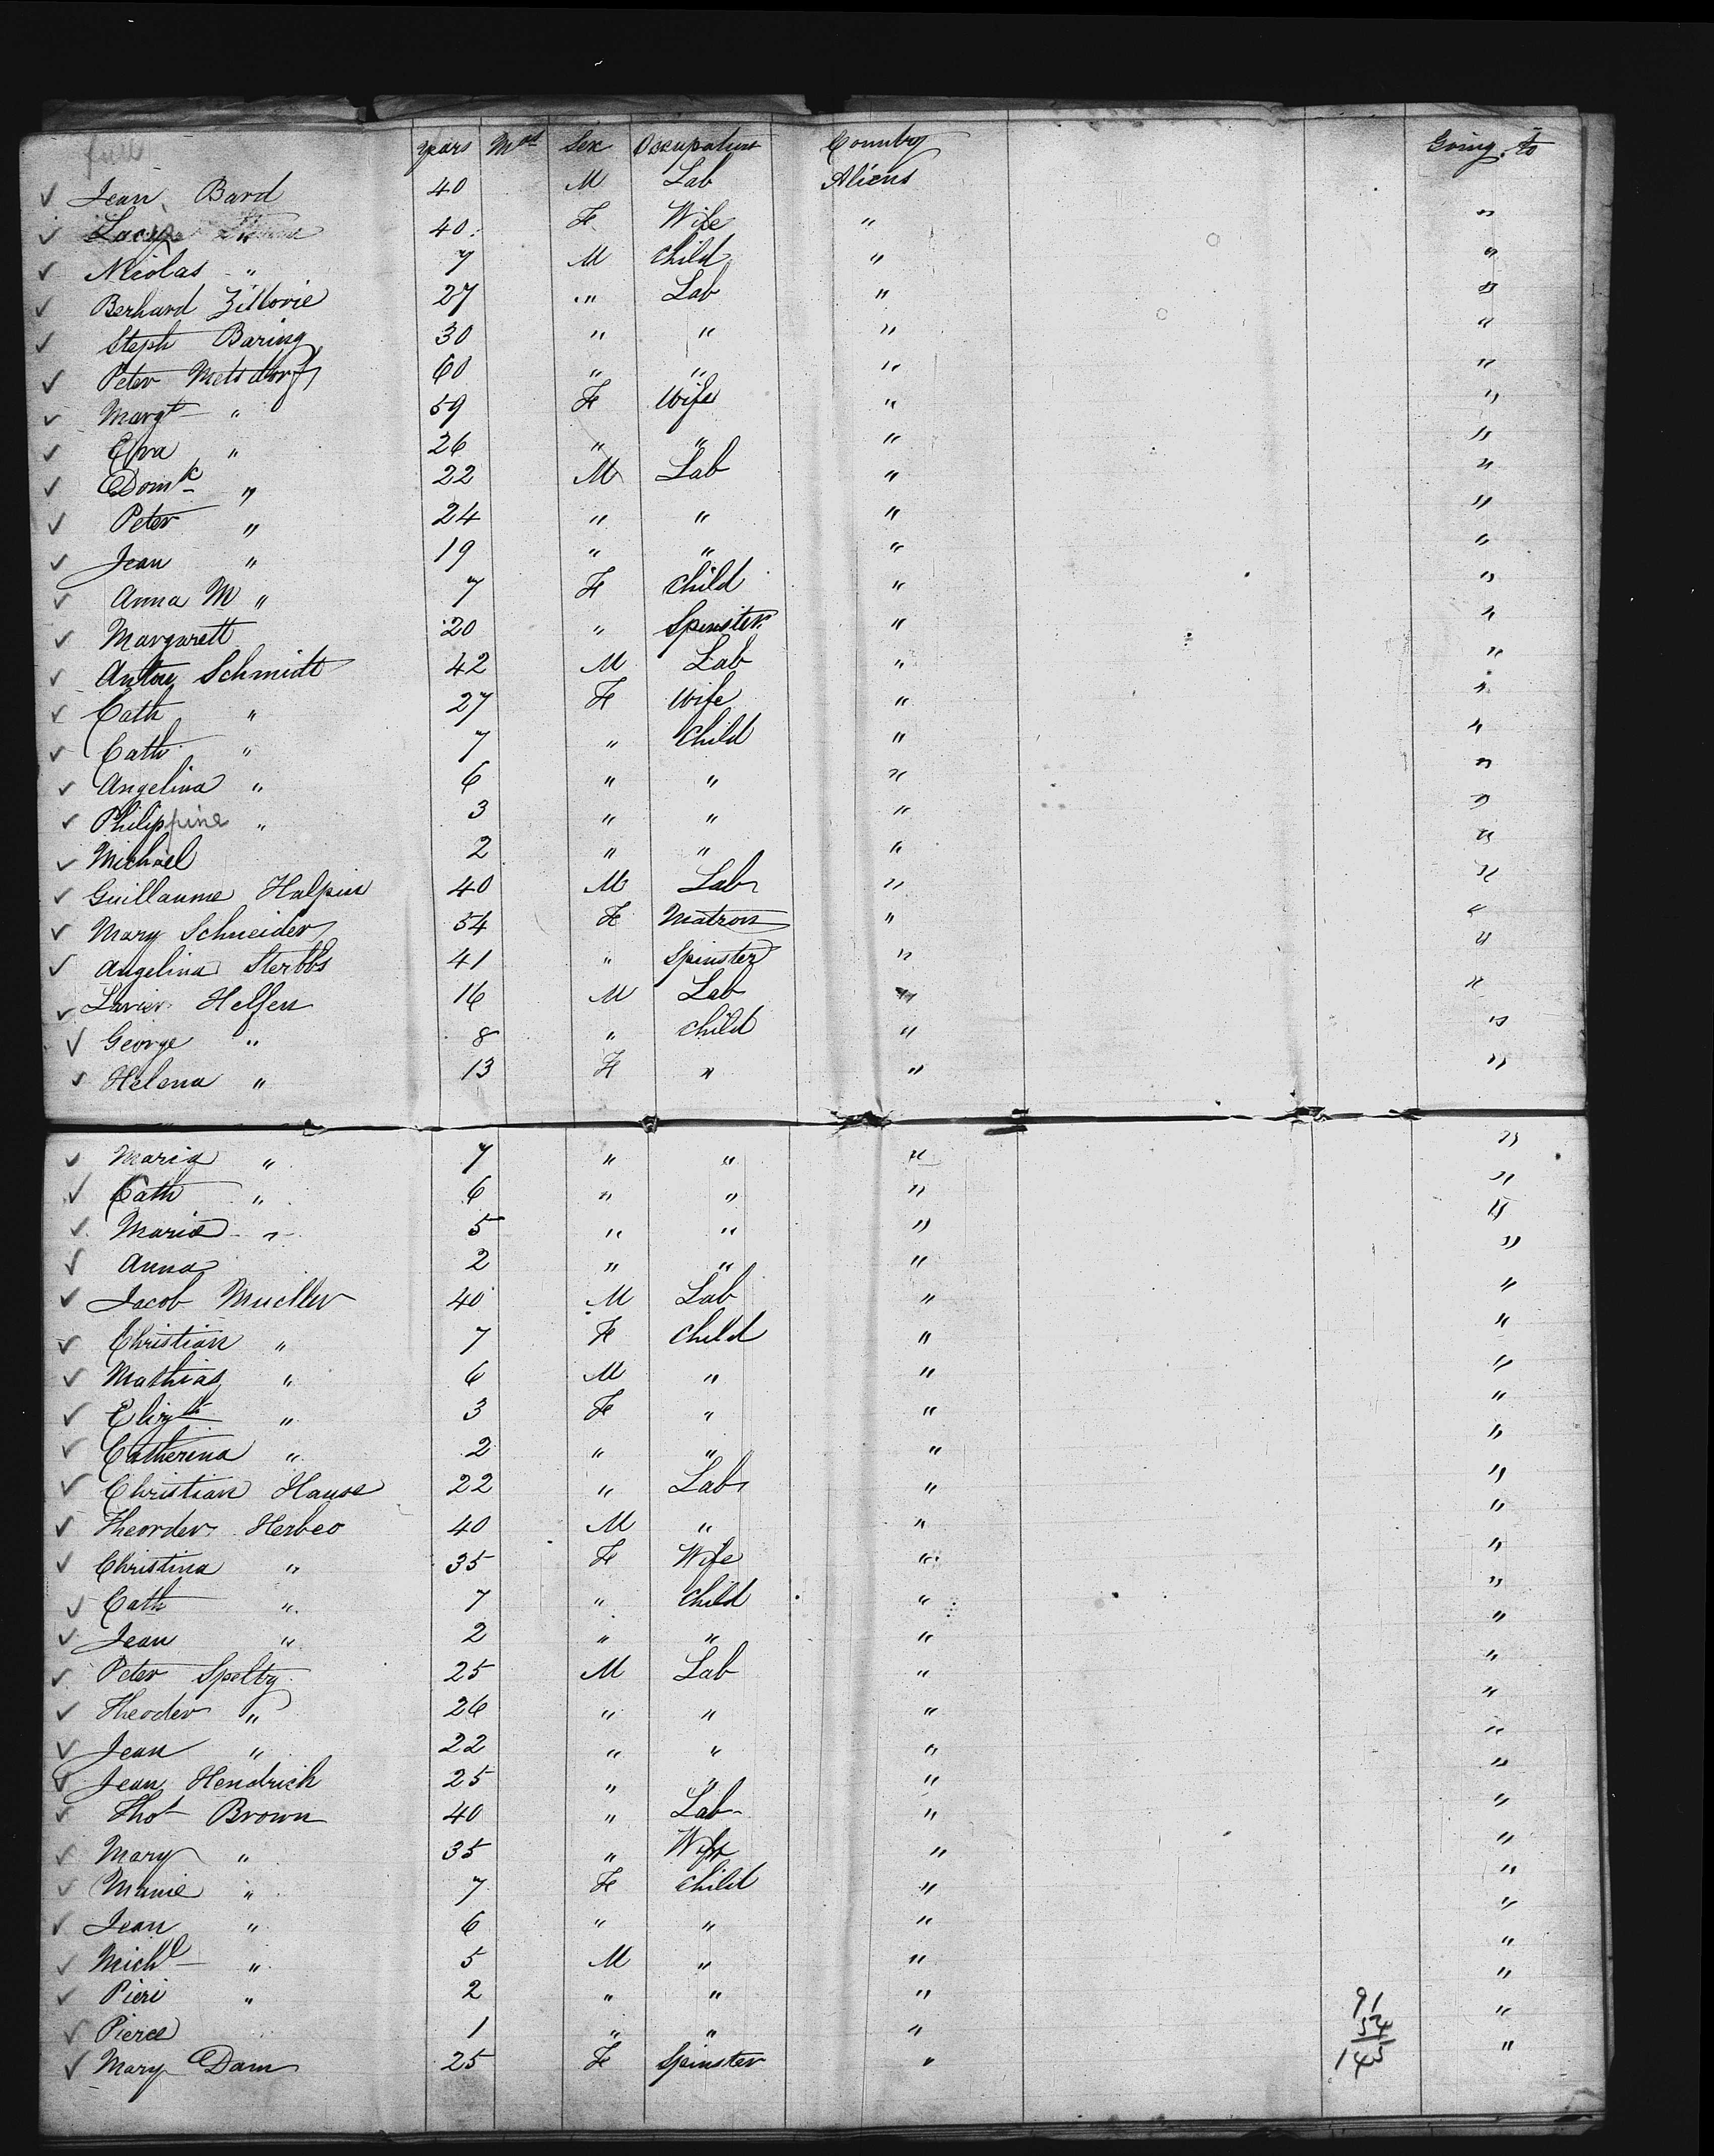 full
years Mos Sex Occupation Country Going to
✓ Jean Bard 40 M Lab Aliens
✓ " 40 F Wife " "
✓ Nicolas " 7 M Child " "
✓ Berhard Zillovie 27 " Lab " "
✓ Steph Baring 30 " " " "
✓ Peter Metsdorf 60 " " " "
✓ Margt " 59 F Wife " "
✓ Eva " 26 " " " "
✓ Domk " 22 M Lab " "
✓ Peter " 24 " " " "
✓ Jean " 19 " " " "
✓ Anna M " 7 F Child " "
✓ Margarett 20 " Spinster " "
✓ Anton Schmidt 42 M Lab " "
✓ Cath " 27 F Wife " "
✓ Cath " 7 " Child " "
✓ Angelina " 6 " " " "
✓ Philippine " 3 " " " "
✓ Michael 2 " " " "
✓ Guillaume Halpin 40 M Lab " "
✓ Mary Schneider 54 F Matron " "
✓ Angelina Sterbbs 41 " Spinster " "
✓ Helfen 16 M Lab " "
✓ George " 8 " Child " "
✓ Helena " 13 F " " "
✓ Maria " 7 " " " "
✓ Cath " 6 " " " "
✓ Maria " 5 " " " "
✓ Anna 2 " " " "
✓ Jacob Mueller 40 M Lab " "
✓ Christian " 7 F Child " "
✓ Mathias " 6 M " " "
✓ Elizth " 3 F " " "
✓ Catherina " 2 " " " "
✓ Christian Hause 22 " Lab " "
✓ Theorder Herbeo 40 M " " "
✓ Christina " 35 F Wife " "
✓ Cath " 7 " Child " "
✓ Jean " 2 " " " "
✓ Peter Spelty 25 M Lab " "
✓ Theoder " 26 " " " "
✓ Jean " 22 " " " "
✓ Jean Hendrich 25 " " " "
✓ Thos Brown 40 " Lab " "
✓ Mary " 35 " Wife " "
✓ Manie " 7 F Child " "
✓ Jean " 6 " " " "
✓ Michl " 5 M " " "
✓ Pieri " 2 " " " "
✓ Pierce 1 " " " "
✓ Mary Dam 25 F Spinster " "
91
54
145